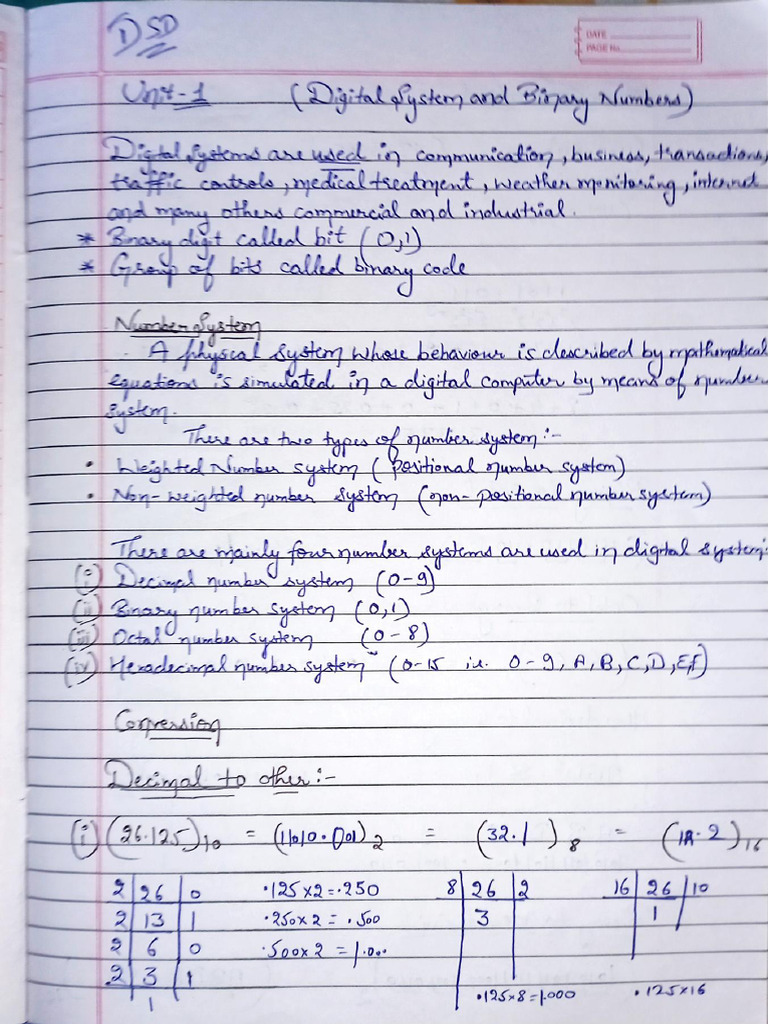 DSD
DATE
PAGE No.
Unit-1 (Digital System and Binary Numbers)
Digital systems are used in communication, business, transactions,
traffic controls, medical treatment, weather monitoring, internet
and many others commercial and industrial.
* Binary digit called bit (0,1)
* Group of bits called binary code
Number System
. A physical system whose behaviour is described by mathematical
equations is simulated in a digital computer by means of number
system.
There are two types of number system:-
• Weighted Number system (Positional number system)
• Non-weighted number system (non-positional number system)
There are mainly four number systems are used in digital system:
(i) Decimal number system (0-9)
(ii) Binary number system (0,1)
(iii) Octal number system (0-8)
(iv) Hexadecimal number system (0-15 i.e. 0-9, A, B, C, D, E, F)
Conversion
Decimal to other:-
(i) (26.125)10 = (11010.001)2 = (32.1)8 = (1A.2)16
2 26 0 .125x2=.250 8 26 2 16 26 10
2 13 1 .250x2 = .500 3 1
2 6 0 .500x2 = 1.000
2 3 1
1 .125x8=1.000 .125x16